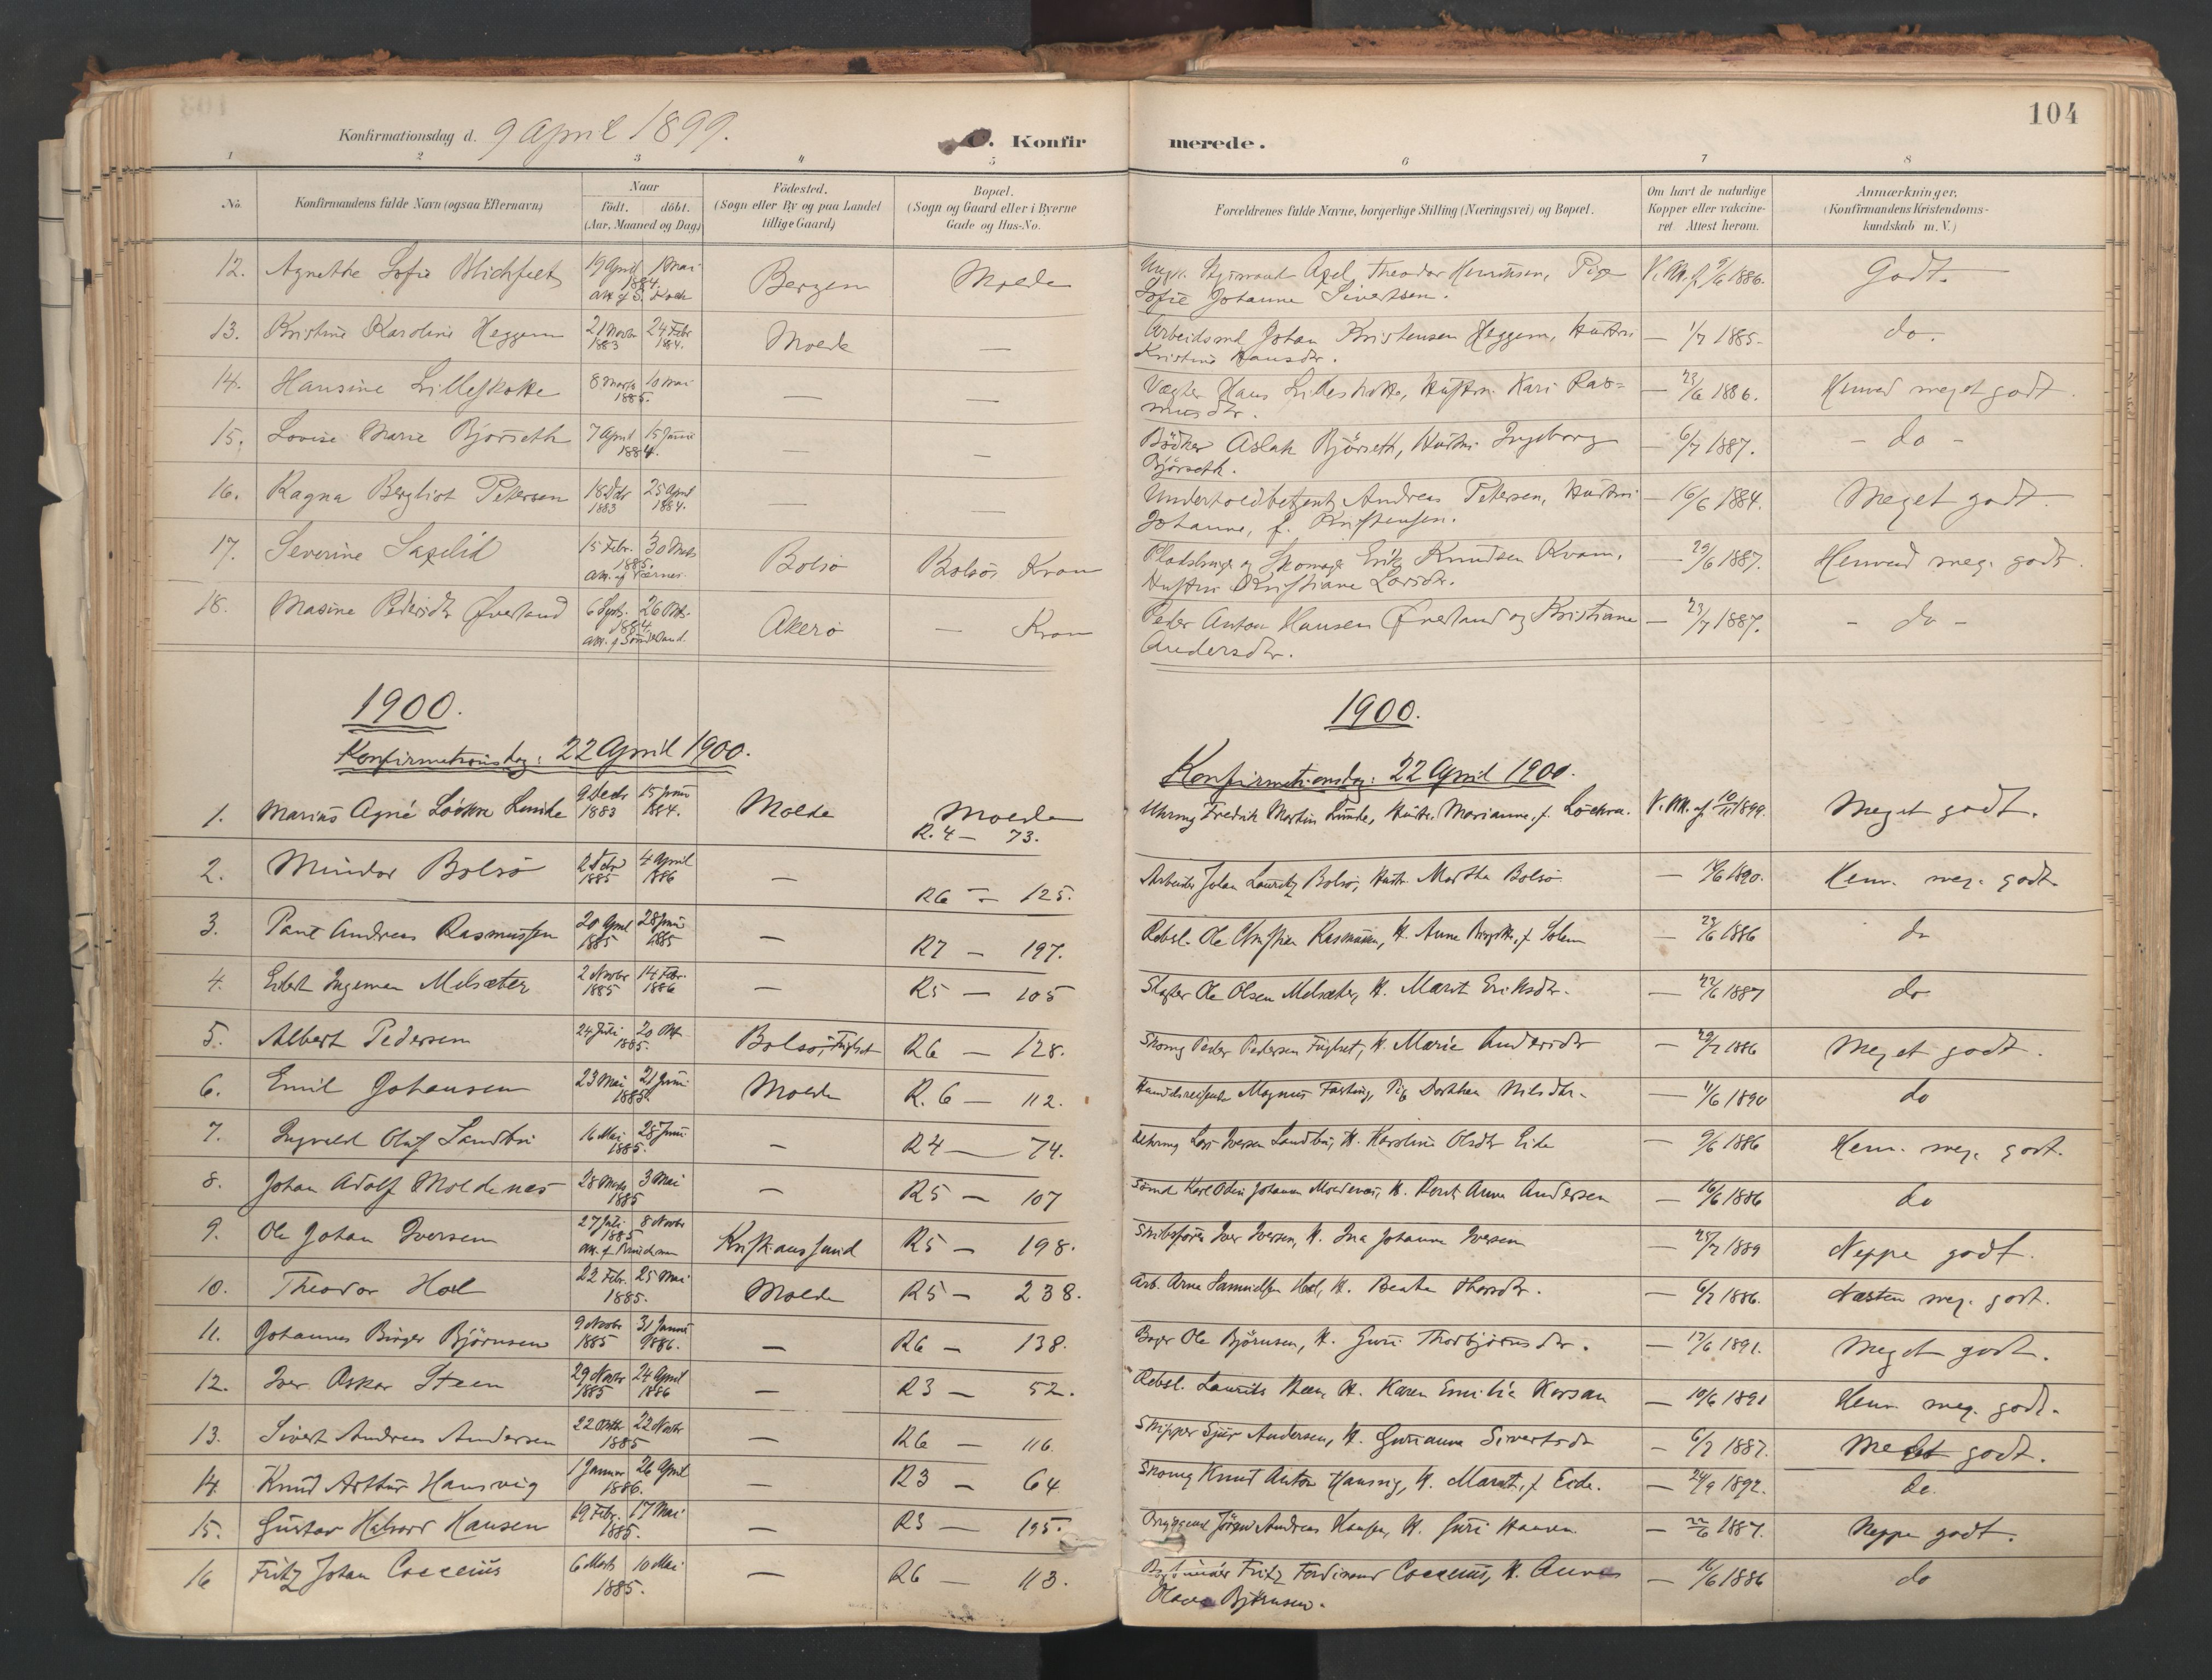 104
Konfirmationsdag d. 9 April 1899.
C. Konfirmerede.
1 2 3 4 5 6 7 8
No. Konfirmandens fulde Navn (ogsaa Efternavn) Naar født. døbt. (Aar, Maaned og Dag) Födested. (Sogn eller By og paa Landet tillige Gaard) Bopæl. (Sogn og Gaard eller i Byerne Gade og Hus-No. Forældrenes fulde Navne, borgerlige Stilling (Næringsvei) og Bopæl. Om havt de naturlige Kopper eller vakcineret. Attest herom. Anmærkninger. (Konfirmandens Kristendomskundskab m. V.)
12. Agnethe Sofie Blichfelt 19 April 1 Mai 1884. Bergen Molde Axel Theodor Henriksen, Pige Sofie Johanne Sivertsen. V. 9/6 1886. Godt.
13. Kristine Karoline Heggem 21 Novbr 1883 24 Febr 1884. Molde — Arbeidsmd Johan Kristensen Heggem, Hustru Kristine Hansdtr. — 1/7 1885. do.
14. Hansine Lilleskotte 8 Marts 10 Mai 1885. — — Vægter Hans Lilleskotte, Hustru Kari Rasmusdtr. — 23/6 1886. Henved meget godt.
15. Lovise Marie Bjørseth 7 April 15 Juni 1884. — — Bödker Aslak Bjørseth, Hustru Ingeborg Bjørseth. — 6/7 1887. — do —
16. Ragna Bergliot Petersen 18 Dcbr 1883 25 April 1884. — — Andreas Petersen, Hustru Johanne, f. Kristensen. — 16/6 1884. Meget godt
17. Severine Saxelid 15 Febr. 30 Marts 1885. Bolsø Bolsø Kvam Pladsbruger og Skomager Erik Knudsen Kvam, Hustru Kristiane Larsdtr. — 29/6 1887. Henved meg. godt.
18. Masine Pedersdtr Øverland 6 Septr. 26 Oktr. 1884. Akerø — Kvam Peder Anton Hansen Øverland og Kristiane Andersdtr. — 23/7 1887. — do —
1900.
1900.
Konfirmationsdag: 22 April 1900.
Konfirmationsdag: 22 April 1900.
1. Marius Løchra 9 Decbr 1883 15 Juni 1884. Molde Molde R. 4 — 73. Uhrmg Fredrik Martin Hustr. Marianne, f. Löchra. 1899. Meget godt.
2. Mindor Bolsø 2 1885 4 April 1886 — R6 — 125. Arbeider Johan Lauritz Bolsø, Hustr. Martha Bolsø. — 1890. Henv. meg. godt.
3. Paul Andreas Rasmussen 20 April 1885 28 Juni 1885 — R7 — 197. Rebsl. Ole Christian Rasmussen, H. Anne f. Solem — 23/6 1886 do
4. Ingeman Melsæter 2 Novbr 1885 14 Febr. 1886 — R5 — 105 Ole Olsen Melsæter, H. Marit Eriksdtr. — 22/6 1887 do
5. Albert Pedersen 24 Juli 20 1885. Bolsø, Fuglset R6 — 128. Skomg Peder Pedersen Fuglset, H. Marie Andersdtr — 29/7 1886 Meget godt.
6. Emil Johansen 23 Mai 21 Juni 1885. Molde R. 6 — 112. Handelsreisende Magnus Pig Dorthea Nilsdtr. — 11/6 1890 do
7. Ingvald Oluf Sandbu 16 Mai 28 Juni 1885. — R4 — 74. Lars Iversen Sandbu, H. Karoline Olsdtr Eide — 9/6 1886 Henv. meg. godt.
8. Johan Adolf Moldenæs 28 Marts 3 Mai 1885 — R5 — 107 Sömd Karl Odin Johansen Moldenæs, H. Anna Andersen — 16/6 1886 do
9. Ole Johan Iversen 27 Juli 8 Novbr 1885 Kristianssund R5 — 198. Skibsförer Iver Iversen, H. Ina Johanne Iversen — 25/7 1889 Neppe godt.
10. Theodor Hoel 22 Febr. 25 Mai 1885. Molde R5 — 238. Arb. Arne Hoel, H. Beate — 6/7 1886. Næsten meg. godt.
11. Johannes Birger Bjørnsen 9 Novbr 1885 31 Januar 1886. — R6 — 138. Bager Ole Bjørnsen, H. Guri Thorbjørnsdtr. — 17/6 1891. Meget godt.
12. Iver Oskar Steen 29 Novbr 1885 24 April 1886 — R3 — 52. Rebsl. Laurits Steen, H. Karen Emilie — 10/6 1891 Henv. meg. godt.
13. Sivert Andreas Andersen 22 Oktbr 22 Novbr 1885 — R6 — 116. Skipper Sjur Andersen, H. Gurianna Sivertsdtr — 6/7 1887. Meget godt.
14. Knud Arthur Hansvig 1 Januar 26 April 1886. — R3 — 64 Skomg Knut Anton Hansvig, H. Marit, f. Eide. — 24/9 1892. do.
15. Gustav Halvord Hansen 19 Febr. 17 Mai 1885. — R5 — 195. Jörgen Andreas Hansen, H. Guri — 22/6 1887. Neppe godt.
16 Fritz Johan Cocceius 6 Marts 10 Mai 1885. — R6 — 113. Fritz Ferdinand Cocceius, H. Anne Olava Bjørnsen. — 16/6 1886 do